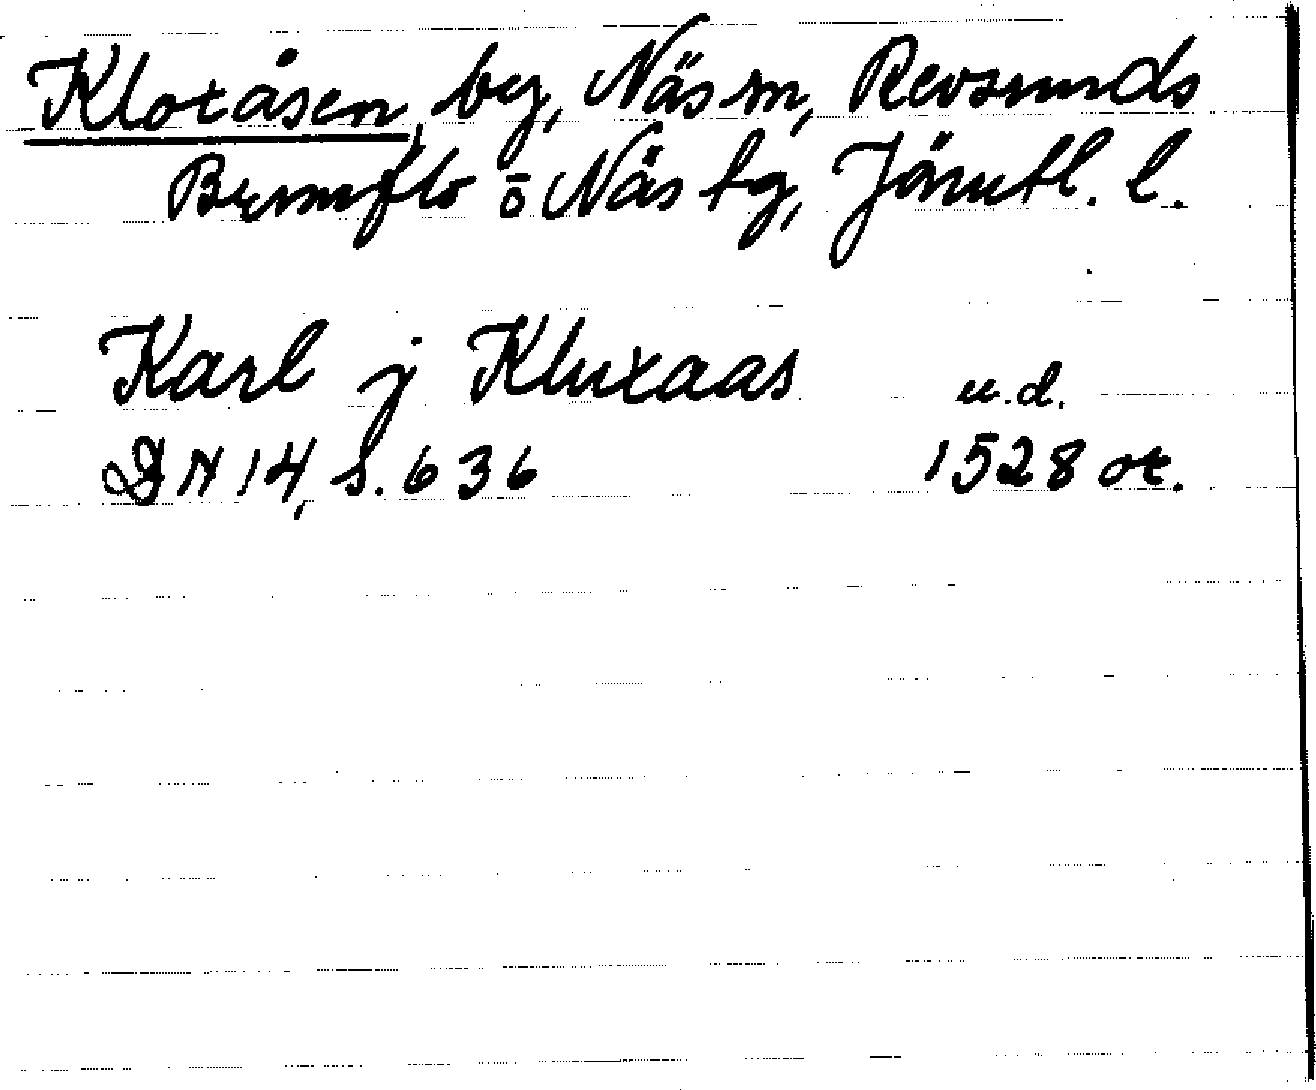 Klotåsen, by, Näs sn, Revsunds
Brunflo o Näs tg, Jämtl. l.
Karl j Kluxaas u.d.
DN 14, s. 636 1528 ot.